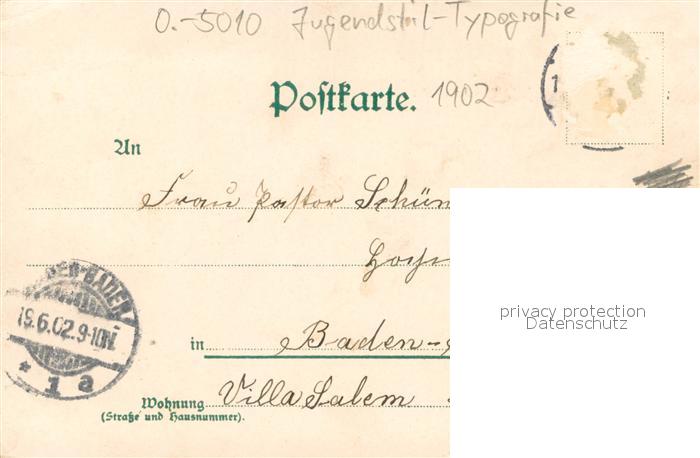 O.-5010 Jugendstil-Typografie
Postkarte. 1902
An
Frau Pastor Schün
privacy protection
Datenschutz
BADEN
19.6.02.9-10N.
* 1 a
in Baden-
Villa Salem
Wohnung
(Straße und Hausnummer).